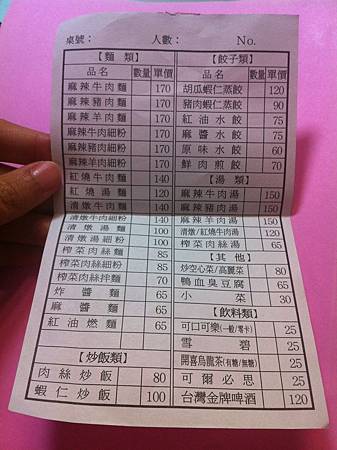 桌號： 人數： No.
【麵 類】
品名 數量 單價
麻辣牛肉麵 170
麻辣豬肉麵 170
麻辣羊肉麵 170
麻辣牛肉細粉 170
麻辣豬肉細粉 170
麻辣羊肉細粉 170
紅燒牛肉麵 140
紅燒湯麵 120
清燉牛肉麵 140
清燉牛肉細粉 140
清燉湯麵 100
清燉湯細粉 100
榨菜肉絲麵 85
榨菜肉絲細粉 85
榨菜肉絲拌麵 70
炸醬麵 65
麻醬麵 65
紅油燃麵 65
【炒飯類】
肉絲炒飯 80
蝦仁炒飯 100
【餃子類】
品名 數量 單價
胡瓜蝦仁蒸餃 120
豬肉蝦仁蒸餃 90
紅油水餃 75
麻醬水餃 75
原味水餃 60
鮮肉煎餃 70
【湯 類】
麻辣牛肉湯 150
麻辣羊肉湯 150
清燉/紅燒牛肉湯 120
榨菜肉絲湯 65
【其 他】
炒空心菜/高麗菜 80
鴨血臭豆腐 65
小菜 30
【飲料類】
可口可樂(一般/零卡) 25
雪碧 25
開喜烏龍茶(有糖/無糖) 25
可爾必思 25
台灣金牌啤酒 120